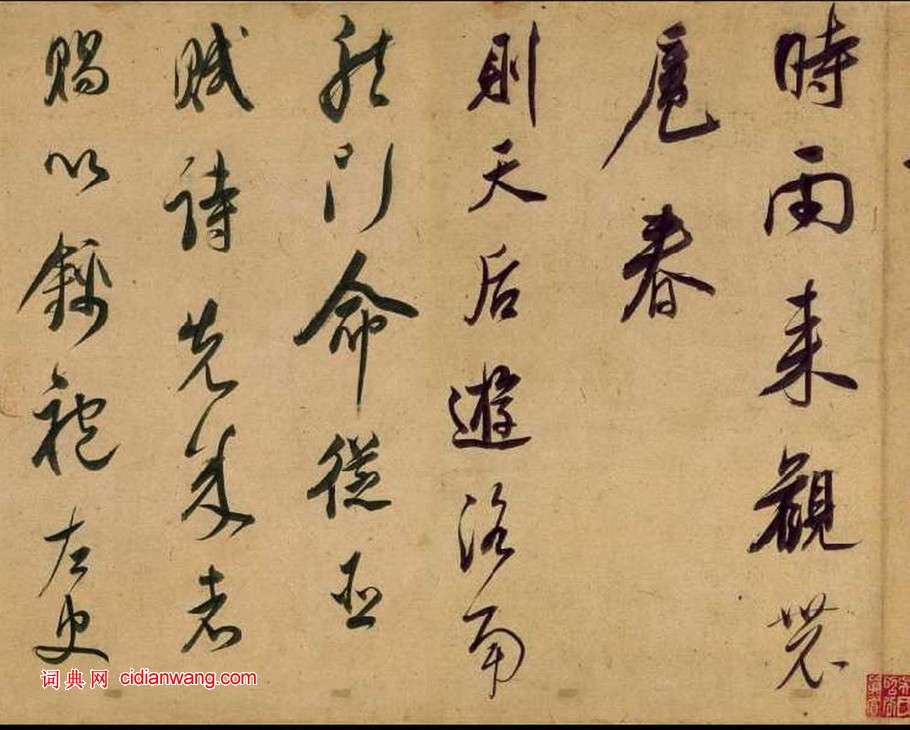 時雨来觀農
扈春
則天后遊洛南
龍門命從臣
賦詩先成者
賜以錦袍左史
词典网 cidianwang.com